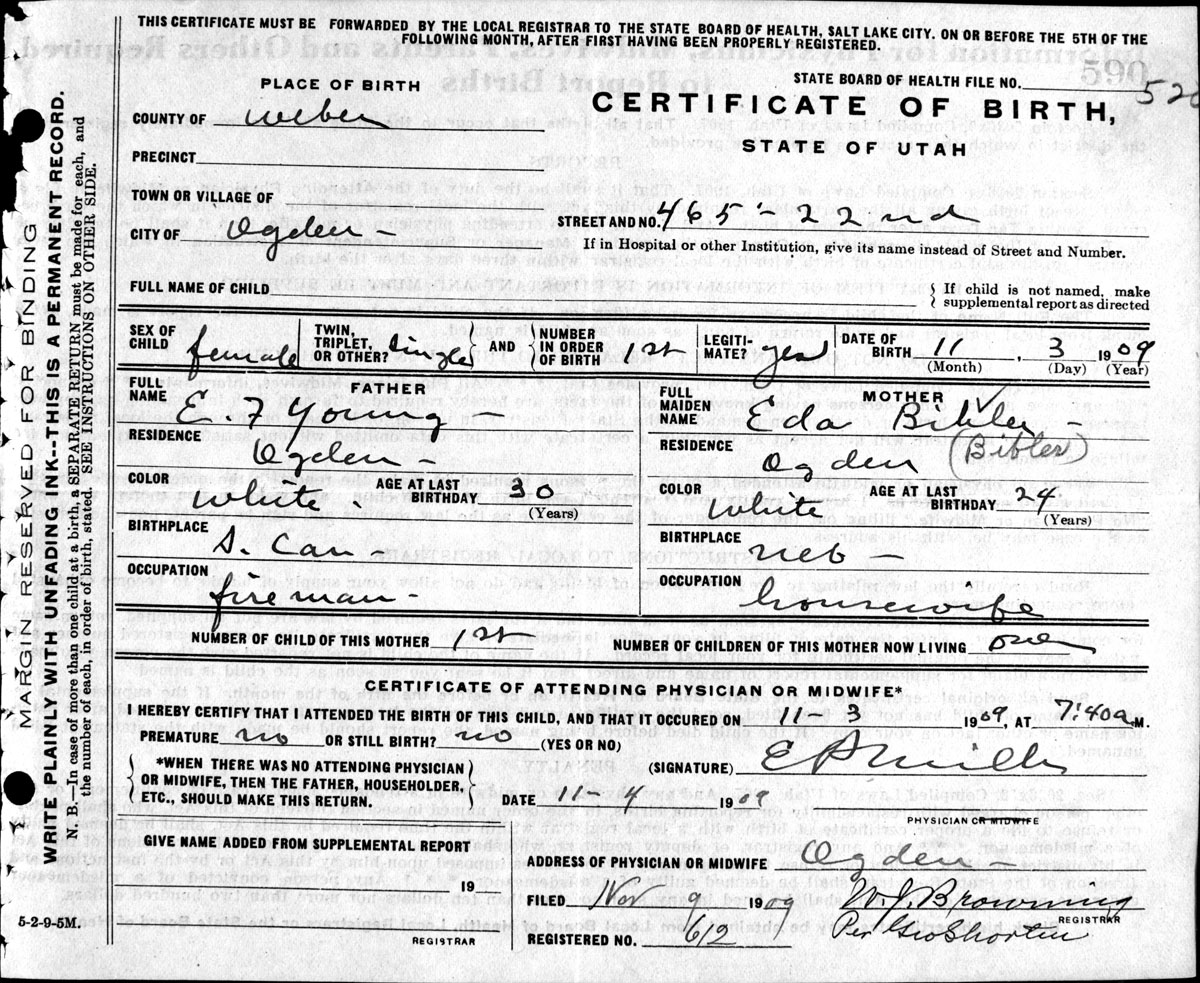 THIS CERTIFICATE MUST BE FORWARDED BY THE LOCAL REGISTRAR TO THE STATE BOARD OF HEALTH, SALT LAKE CITY, ON OR BEFORE THE 5TH OF THE
FOLLOWING MONTH, AFTER FIRST HAVING BEEN PROPERLY REGISTERED.
MARGIN RESERVED FOR BINDING
WRITE PLAINLY WITH UNFADING INK--THIS IS A PERMANENT RECORD.
N. B.—In case of more than one child at a birth, a SEPARATE RETURN must be made for each, and
the number of each, in order of birth, stated. SEE INSTRUCTIONS ON OTHER SIDE.
STATE BOARD OF HEALTH FILE NO. 520
590
PLACE OF BIRTH
CERTIFICATE OF BIRTH,
STATE OF UTAH
COUNTY OF Weber
PRECINCT
TOWN OR VILLAGE OF
CITY OF Ogden
STREET AND NO. 465 - 22nd
If in Hospital or other Institution, give its name instead of Street and Number.
FULL NAME OF CHILD
If child is not named, make
supplemental report as directed
SEX OF CHILD female
TWIN, TRIPLET, OR OTHER? single AND NUMBER IN ORDER OF BIRTH 1st
LEGITI- MATE? yes
DATE OF BIRTH 11, 3 1909
(Month) (Day) (Year)
FATHER
FULL NAME E. F Young -
RESIDENCE
Ogden -
COLOR White. AGE AT LAST BIRTHDAY 30
(Years)
BIRTHPLACE
S. Can -
OCCUPATION
fireman -
MOTHER
FULL MAIDEN NAME Eda Bibler -
RESIDENCE
Ogden (Bibler)
COLOR White AGE AT LAST BIRTHDAY 24
(Years)
BIRTHPLACE
Neb -
OCCUPATION
housewife
NUMBER OF CHILD OF THIS MOTHER 1st
NUMBER OF CHILDREN OF THIS MOTHER NOW LIVING one
CERTIFICATE OF ATTENING PHYSICIAN OR MIDWIFE*
I HEREBY CERTIFY THAT I ATTENDED THE BIRTH OF THIS CHILD, AND THAT IT OCCURED ON 11 - 3 1909, AT 7:40a M.
PREMATURE no OR STILL BIRTH? no (YES OR NO)
*WHEN THERE WAS NO ATTENDING PHYSICIAN
OR MIDWIFE, THEN THE FATHER, HOUSEHOLDER,
ETC., SHOULD MAKE THIS RETURN.
(SIGNATURE) E P Mills
DATE 11 - 4 1909
PHYSICIAN OR MIDWIFE
GIVE NAME ADDED FROM SUPPLEMENTAL REPORT
19
REGISTRAR
ADDRESS OF PHYSICIAN OR MIDWIFE Ogden -
FILED Nov 9 1909
Browning
REGISTRAR
REGISTERED NO. 612
Per Geo Shorten
5-2-9-5M.